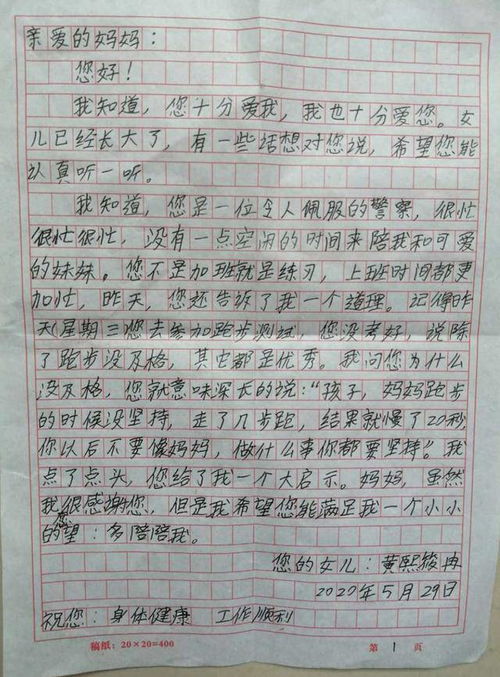 亲爱的妈妈：
您好！
我知道，您十分爱我，我也十分爱您。女
儿已经长大了，有一些话想对您说，希望您能
认真听一听。
我知道，您是一位令人佩服的警察，很忙
很忙很忙，没有一点空闲的时间来陪我和可爱
的妹妹。您不是加班就是练习，上班时间都更
加忙，昨天，您还告诉了我一个道理。记得昨
天(星期三您去参加跑步测试，您没考好，说除
了跑步没及格，其它都是优秀。我问您为什么
没及格，您就意味深长的说：“孩子，妈妈跑步
的时候没坚持，走了几步跑，结果就慢了20秒，
你以后不要像妈妈，做什么事你都要坚持。”我
点了点头，您给了我一个大启示。妈妈，虽然
我很感谢您，但是我希望您能满足我一个小小
的望：多陪陪我。
您的女儿：黄熙
2020年5月29日
祝您：身体健康 工作顺利
稿纸：20×20=400 第 1 页